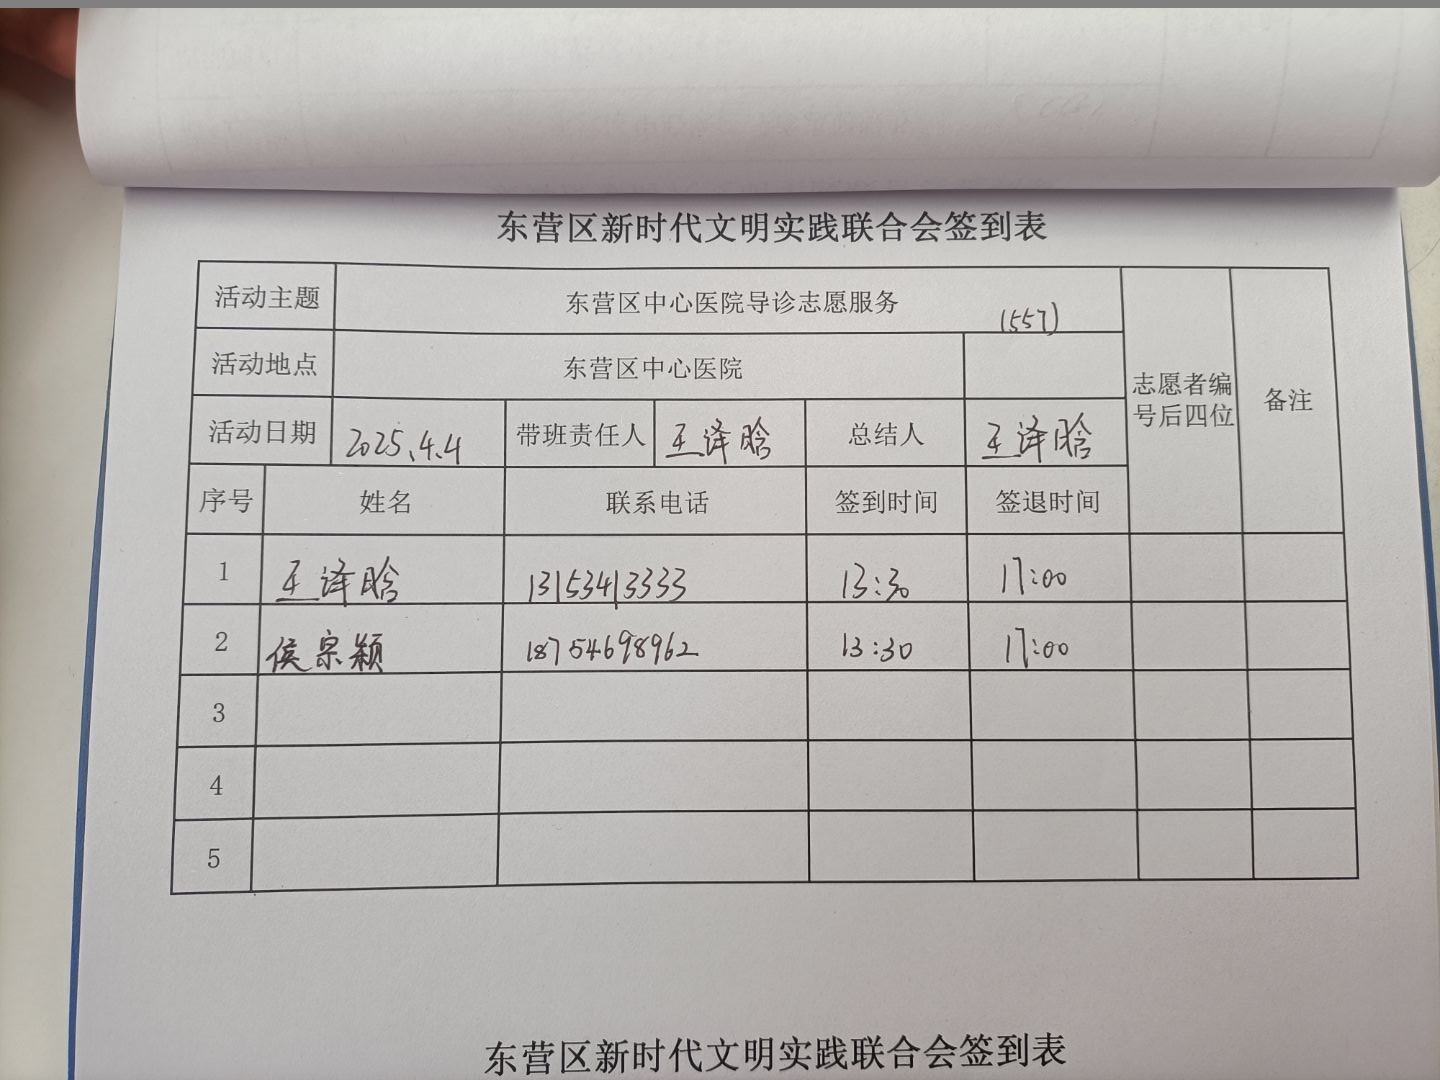 东营区新时代文明实践联合会签到表
活动主题 东营区中心医院导诊志愿服务 (557)
活动地点 东营区中心医院
志愿者编号后四位 备注
活动日期 2025.4.4 带班责任人 王泽晗 总结人 王泽晗
序号 姓名 联系电话 签到时间 签退时间
1 王泽晗 13153413333 13:30 17:00
2 侯宗颖 18754698962 13:30 17:00
3
4
5
东营区新时代文明实践联合会签到表